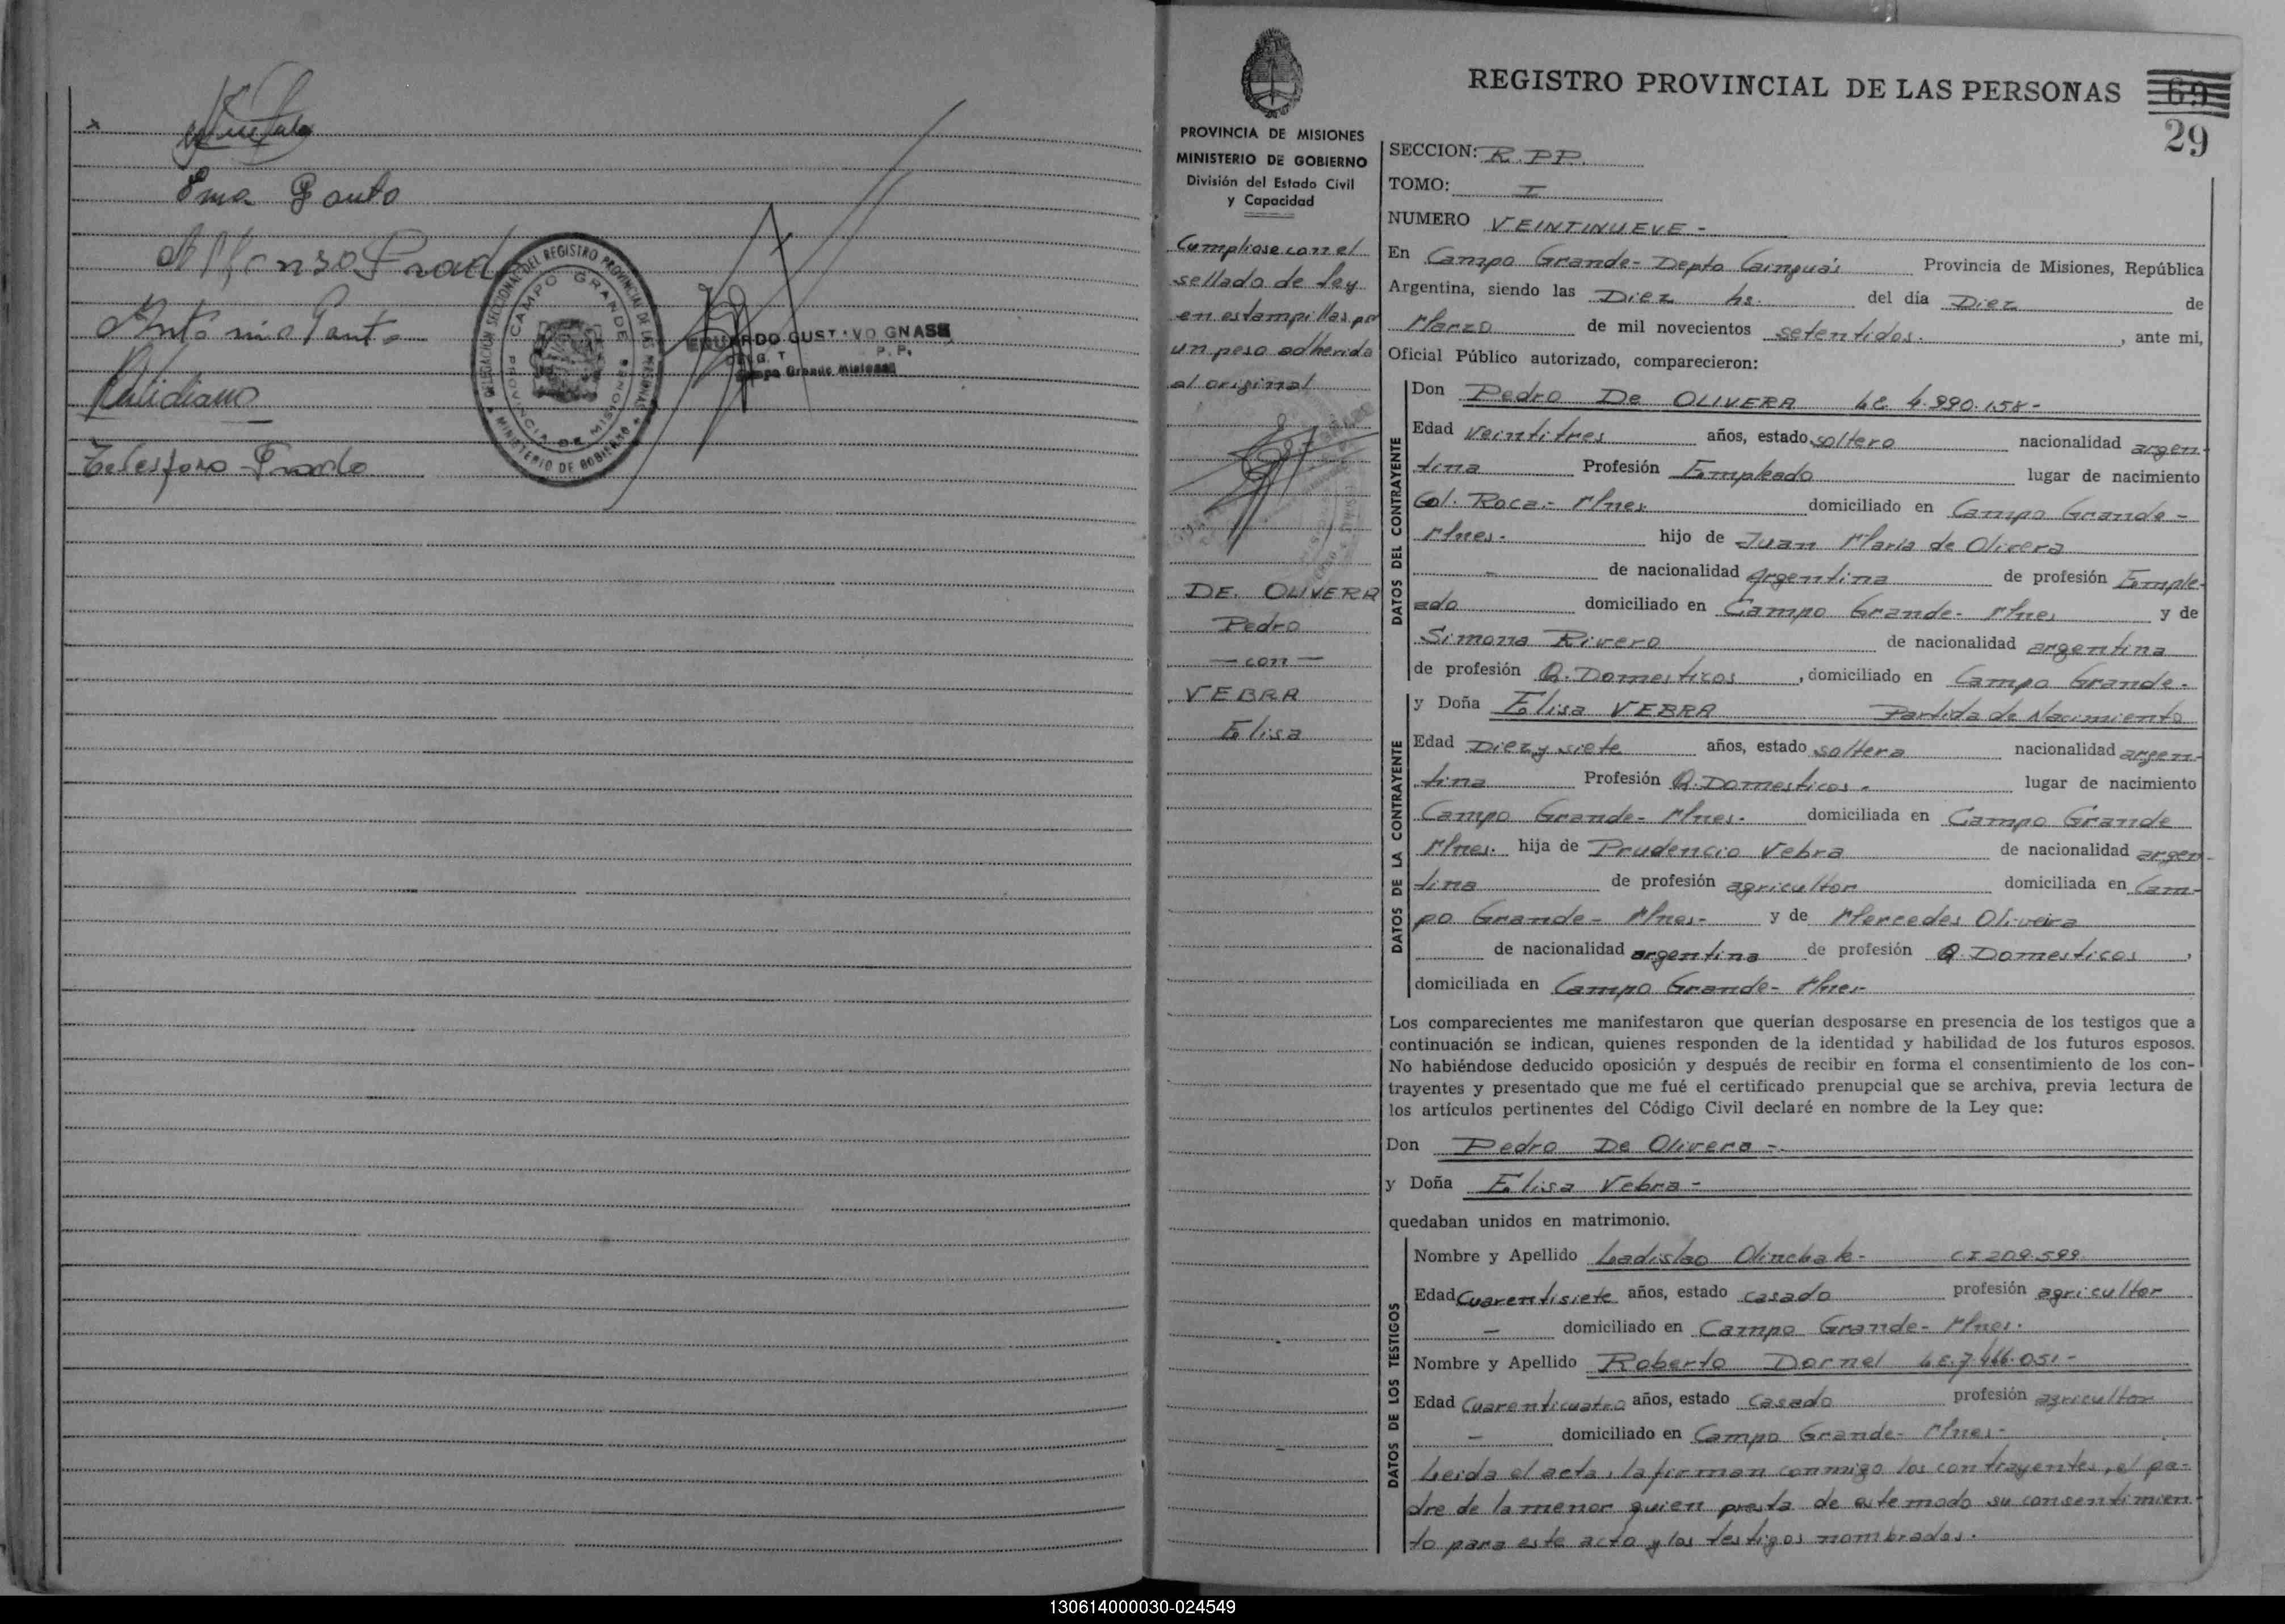 x
Ema Gauto
Alfonso Prado
Antonio Gauto
Telesforo Prado
DELEGACION SECCIONAL DEL REGISTRO PROVINCIAL DE LAS PERSONAS
MINISTERIO DE GOBIERNO
CAMPO GRANDE
PROVINCIA DE MISIONES
EDUARDO GUSTAVO GNASS
P. P.
Campo Grande Misiones
PROVINCIA DE MISIONES
MINISTERIO DE GOBIERNO
División del Estado Civil
y Capacidad
Cumpliose con el
sellado de Ley
en estampillas por
un peso adherido
al original
DE OLIVERA
Pedro
- con -
VEBRA
Elisa
REGISTRO PROVINCIAL DE LAS PERSONAS
69
29
SECCION: R.PP.
TOMO: I
NUMERO VEINTINUEVE -
En Campo Grande- Depto Cainguás Provincia de Misiones, República
Argentina, siendo las Diez hs. del día Diez de
Marzo de mil novecientos setentidos. , ante mi,
Oficial Público autorizado, comparecieron:
DATOS DEL CONTRAYENTE
Don Pedro De OLIVERA LE 4.990.158-
Edad Veintitres años, estado soltero nacionalidad argen-
tina Profesión Empleado lugar de nacimiento
Col. Roca.- Mnes. domiciliado en Campo Grande-
Mnes.- hijo de Juan Maria de Olivera
- de nacionalidad argentina de profesión Emple-
ado domiciliado en Campo Grande- Mnes y de
Simona Rivero de nacionalidad argentina
de profesión Q. Domesticos , domiciliado en Campo Grande.
DATOS DE LA CONTRAYENTE
y Doña Elisa VEBRA Partida de Nacimiento
Edad Diez y siete años, estado soltera nacionalidad argen-
tina Profesión Q. Domesticos. lugar de nacimiento
Campo Grande- Mnes.- domiciliada en Campo Grande
Mnes. hija de Prudencio Vebra de nacionalidad argen-
tina de profesión agricultor domiciliada en Cam-
po Grande- Mnes.- y de Mercedes Oliveira
de nacionalidad argentina de profesión Q. Domesticos ,
domiciliada en Campo Grande- Mnes-
Los comparecientes me manifestaron que querían desposarse en presencia de los testigos que a
continuación se indican, quienes responden de la identidad y habilidad de los futuros esposos.
No habiéndose deducido oposición y después de recibir en forma el consentimiento de los con-
trayentes y presentado que me fué el certificado prenupcial que se archiva, previa lectura de
los artículos pertinentes del Código Civil declaré en nombre de la Ley que:
Don Pedro De Olivera -
y Doña Elisa Vebra -
quedaban unidos en matrimonio.
DATOS DE LOS TESTIGOS
Nombre y Apellido Ladislao Olinchak- CI 209.599
Edad Cuarentisiete años, estado casado profesión agricultor
- domiciliado en Campo Grande- Mnes.
Nombre y Apellido Roberto Dornel LE.7.466.051-
Edad Cuarenticuatro años, estado casado profesión agricultor
- domiciliado en Campo Grande- Mnes-
Leida el acta, la firman conmigo los contrayentes, el pa-
dre de la menor quien presta de este modo su consentimien-
to para este acto y los testigos nombrados.
130614000030-024549